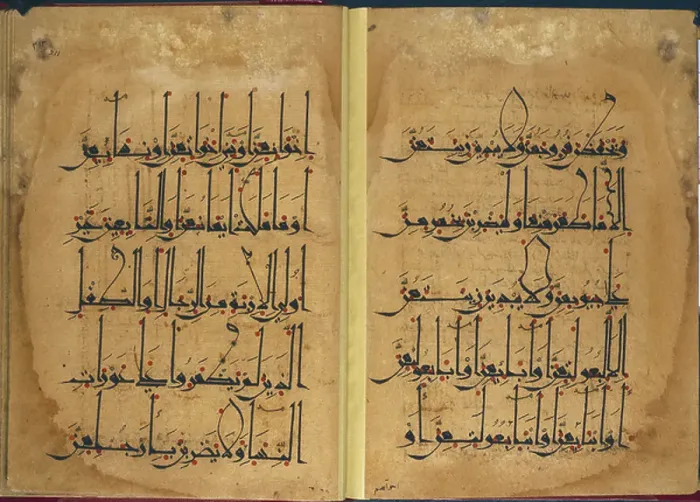 وَيَحْفَظْنَ فُرُوجَهُنَّ وَلَا يُبْدِينَ زِينَتَهُنَّ
إِلَّا مَا ظَهَرَ مِنْهَا وَلْيَضْرِبْنَ بِخُمُرِهِنَّ
عَلَى جُيُوبِهِنَّ وَلَا يُبْدِينَ زِينَتَهُنَّ
إِلَّا لِبُعُولَتِهِنَّ أَوْ آبَائِهِنَّ أَوْ آبَاءِ بُعُولَتِهِنَّ
أَوْ أَبْنَائِهِنَّ أَوْ أَبْنَاءِ بُعُولَتِهِنَّ أَوْ
اخوانهن
إِخْوَانِهِنَّ أَوْ بَنِي إِخْوَانِهِنَّ أَوْ نِسَائِهِنَّ
أَوْ مَا مَلَكَتْ أَيْمَانُهُنَّ أَوِ التَّابِعِينَ غَيْرِ
أُولِي الْإِرْبَةِ مِنَ الرِّجَالِ أَوِ الطِّفْلِ
الَّذِينَ لَمْ يَظْهَرُوا عَلَى عَوْرَاتِ
النِّسَاءِ وَلَا يَضْرِبْنَ بِأَرْجُلِهِنَّ